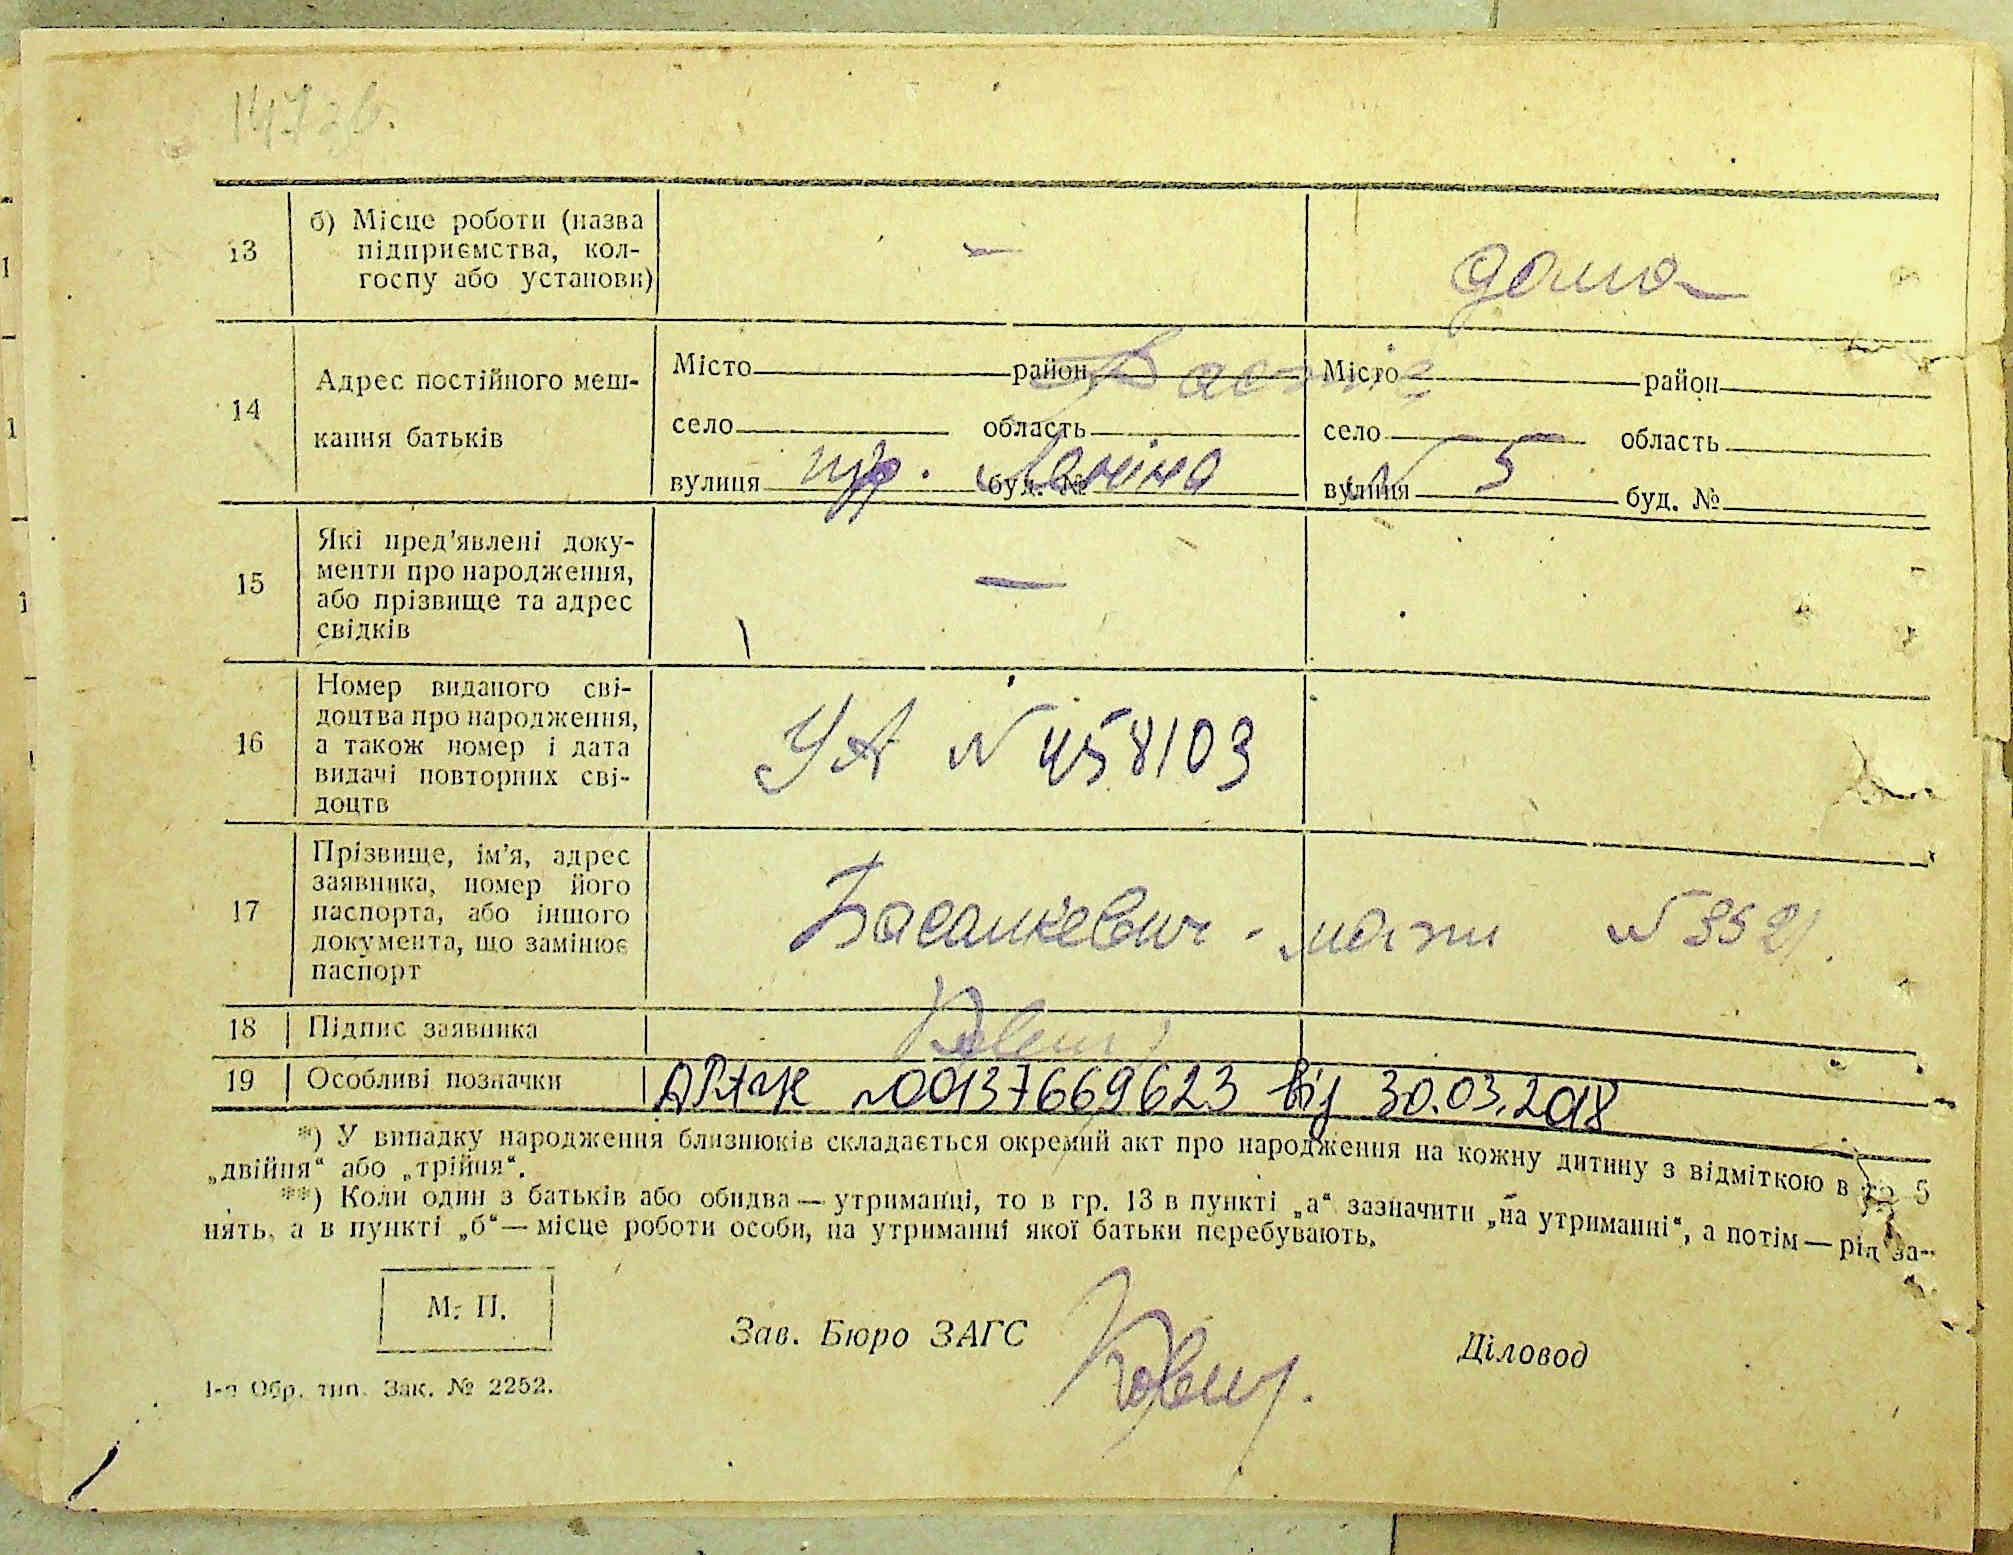 147 зв.
13
б) Місце роботи (назва
підприємства, кол-
госпу або установи)
—
дома
14
Адрес постійного меш-
кання батьків
Місто район
Місто район
село область
село область
вулиця пр. Леніна буд. №
вулиця № 5 буд. №
15
Які пред'явлені доку-
менти про народження,
або прізвище та адрес
свідків
—
16
Номер виданого сві-
доцтва про народження,
а також номер і дата
видачі повторних сві-
доцтв
УА № 458103
17
Прізвище, ім'я, адрес
заявника, номер його
паспорта, або іншого
документа, що замінює
паспорт
Басанкевич - мати № 3521.
18 Підпис заявника
19 Особливі позначки
№ 00137669623 від 30.03.2018
*) У випадку народження близнюків складається окремий акт про народження на кожну дитину з відміткою в гр. 5
„двійня“ або „трійня“.
**) Коли один з батьків або обидва — утриманці, то в гр. 13 в пункті „а“ зазначити „на утриманні“, а потім — рід за-
нять, а в пункті „б“ — місце роботи особи, на утриманні якої батьки перебувають.
М. П.
Зав. Бюро ЗАГС
Діловод
1-а Обр. тип. Зак. № 2252.